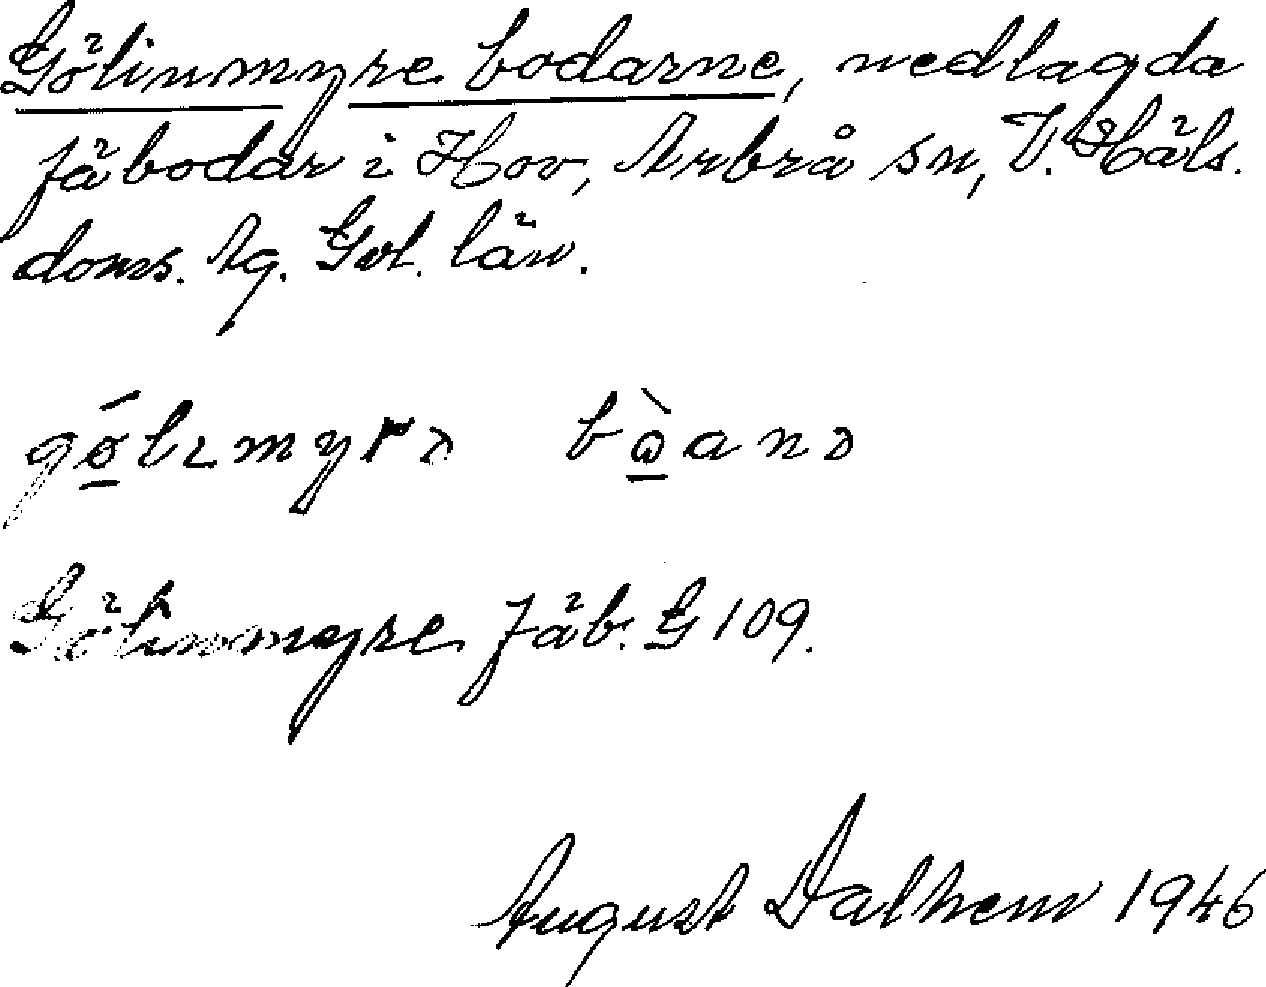 Gölinmyre bodarne, nedlagda
fäbodar i Hov, Arbrå sn, V. Häls.
doms. lg. Gvl. län.
bòand
Gölinmyre Fäb. G 109.
August Dalhem 1946